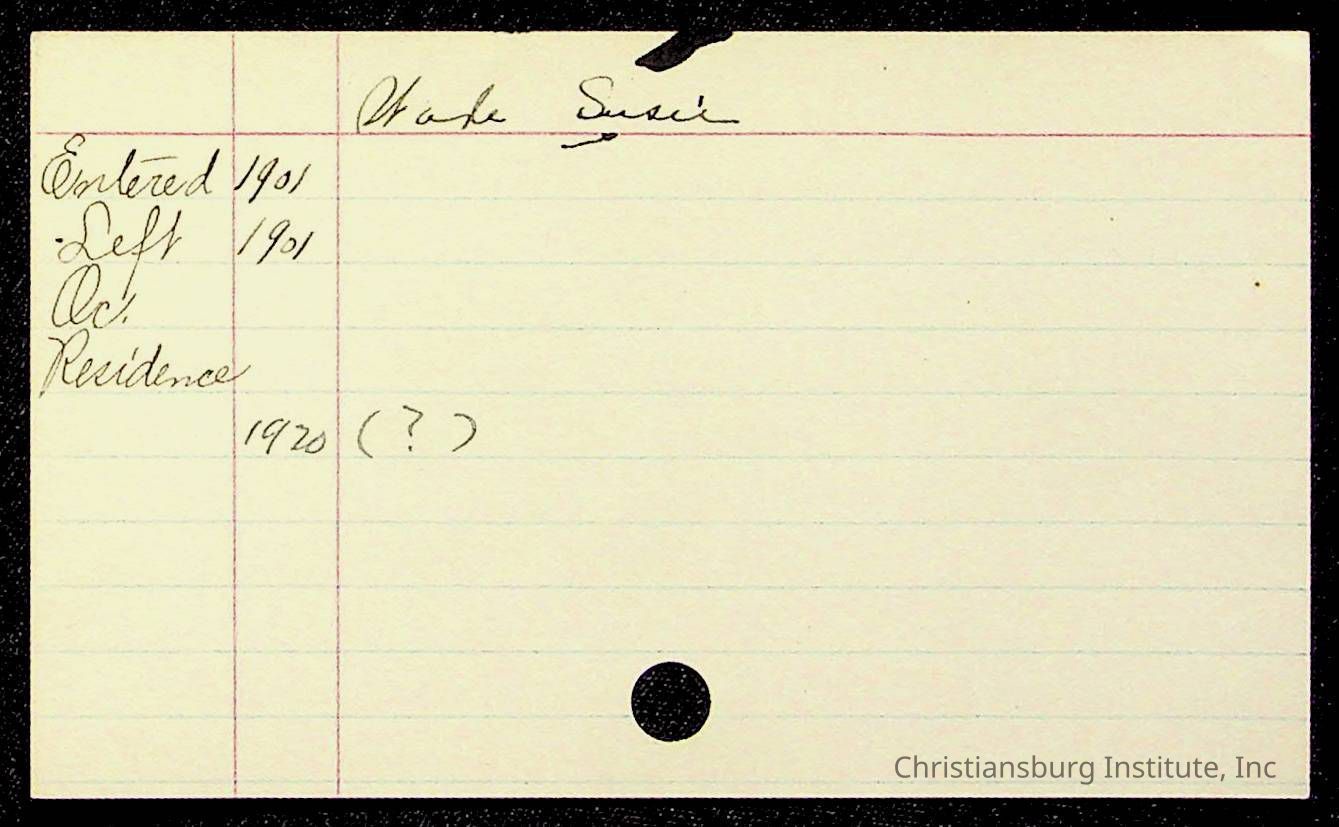 Wade Susie
Entered 1901
Left 1901
Oc.
Residence
1920 (?)
Christiansburg Institute, Inc